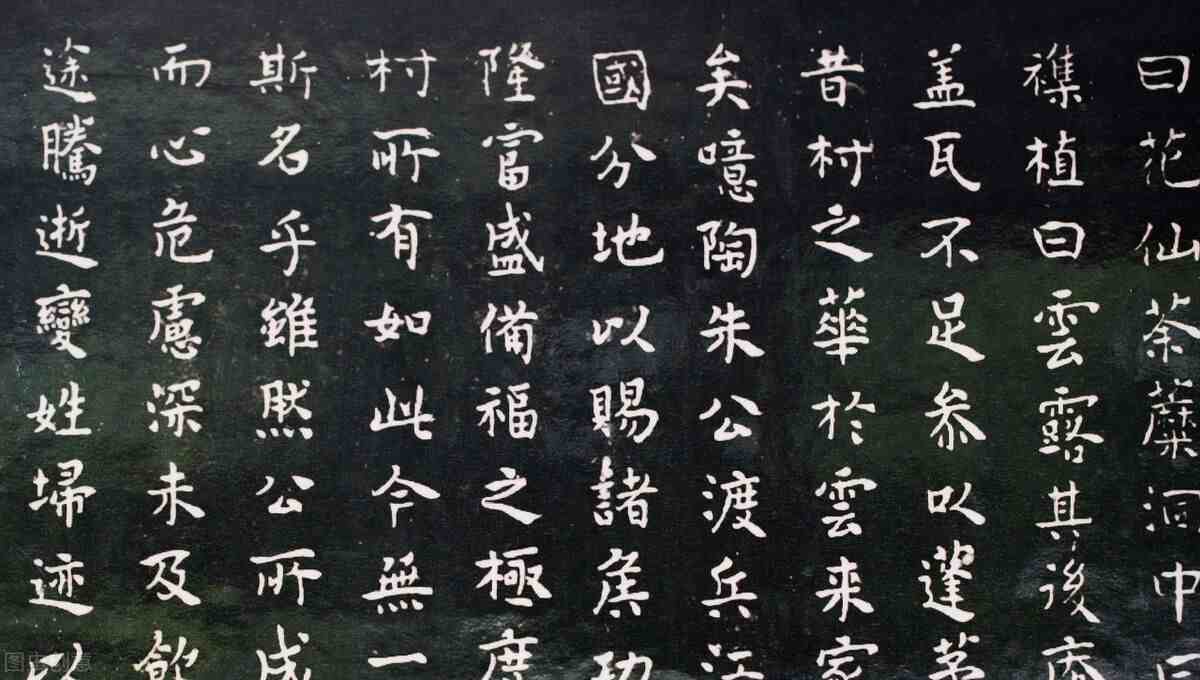 曰花仙荼蘼洞中曰
襍植曰雲露其後齋
盖瓦不足叅以蓬茅
昔村之華於雲来家
矣噫陶朱公渡兵江
國分地以賜諸矦功
隆富盛備福之極度
村所有如此今無一
斯名乎雖然公所成
而心危慮深未及飲
途騰逝變姓埽迹以
图虫创意